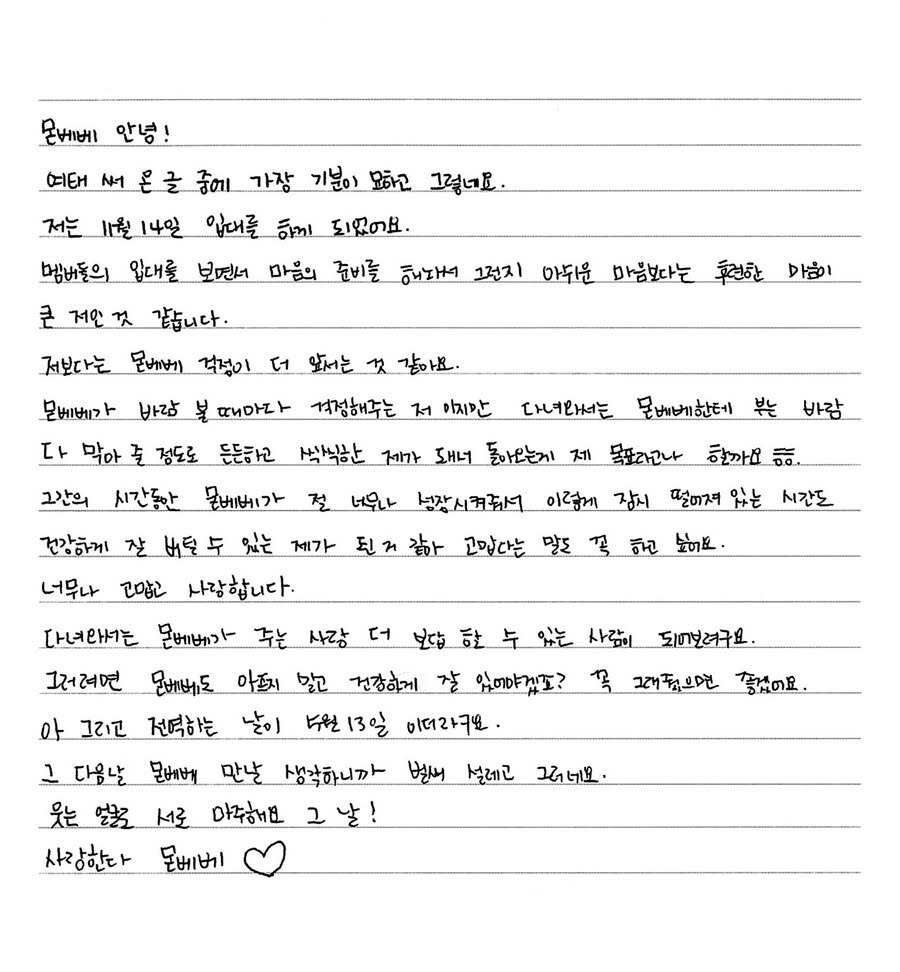 몬베베 안녕!
여태 써 온 글 중에 가장 기분이 묘하고 그렇네요.
저는 11월 14일 입대를 하게 되었어요.
멤버들의 입대를 보면서 마음의 준비를 해놔서 그런지 아쉬운 마음보다는 후련한 마음이
큰 저인 것 같습니다.
저보다는 몬베베 걱정이 더 앞서는 것 같아요.
몬베베가 바람 불 때마다 걱정해주는 저 이지만 다녀와서는 몬베베한테 부는 바람
다 막아 줄 정도로 든든하고 씩씩한 제가 돼서 돌아오는게 제 목표라고나 할까요 ㅎㅎ.
그간의 시간동안 몬베베가 절 너무나 성장시켜줘서 이렇게 잠시 떨어져 있는 시간도
건강하게 잘 버틸 수 있는 제가 된 거 같아 고맙다는 말도 꼭 하고 싶어요.
너무나 고맙고 사랑합니다.
다녀와서는 몬베베가 주는 사랑 더 보답 할 수 있는 사람이 되어보려구요.
그러려면 몬베베도 아프지 말고 건강하게 잘 있어야겠죠? 꼭 그래줬으면 좋겠어요.
아 그리고 전역하는 날이 5월 13일 이더라구요.
그 다음날 몬베베 만날 생각하니까 벌써 설레고 그러네요.
웃는 얼굴로 서로 마주해요 그 날!
사랑한다 몬베베